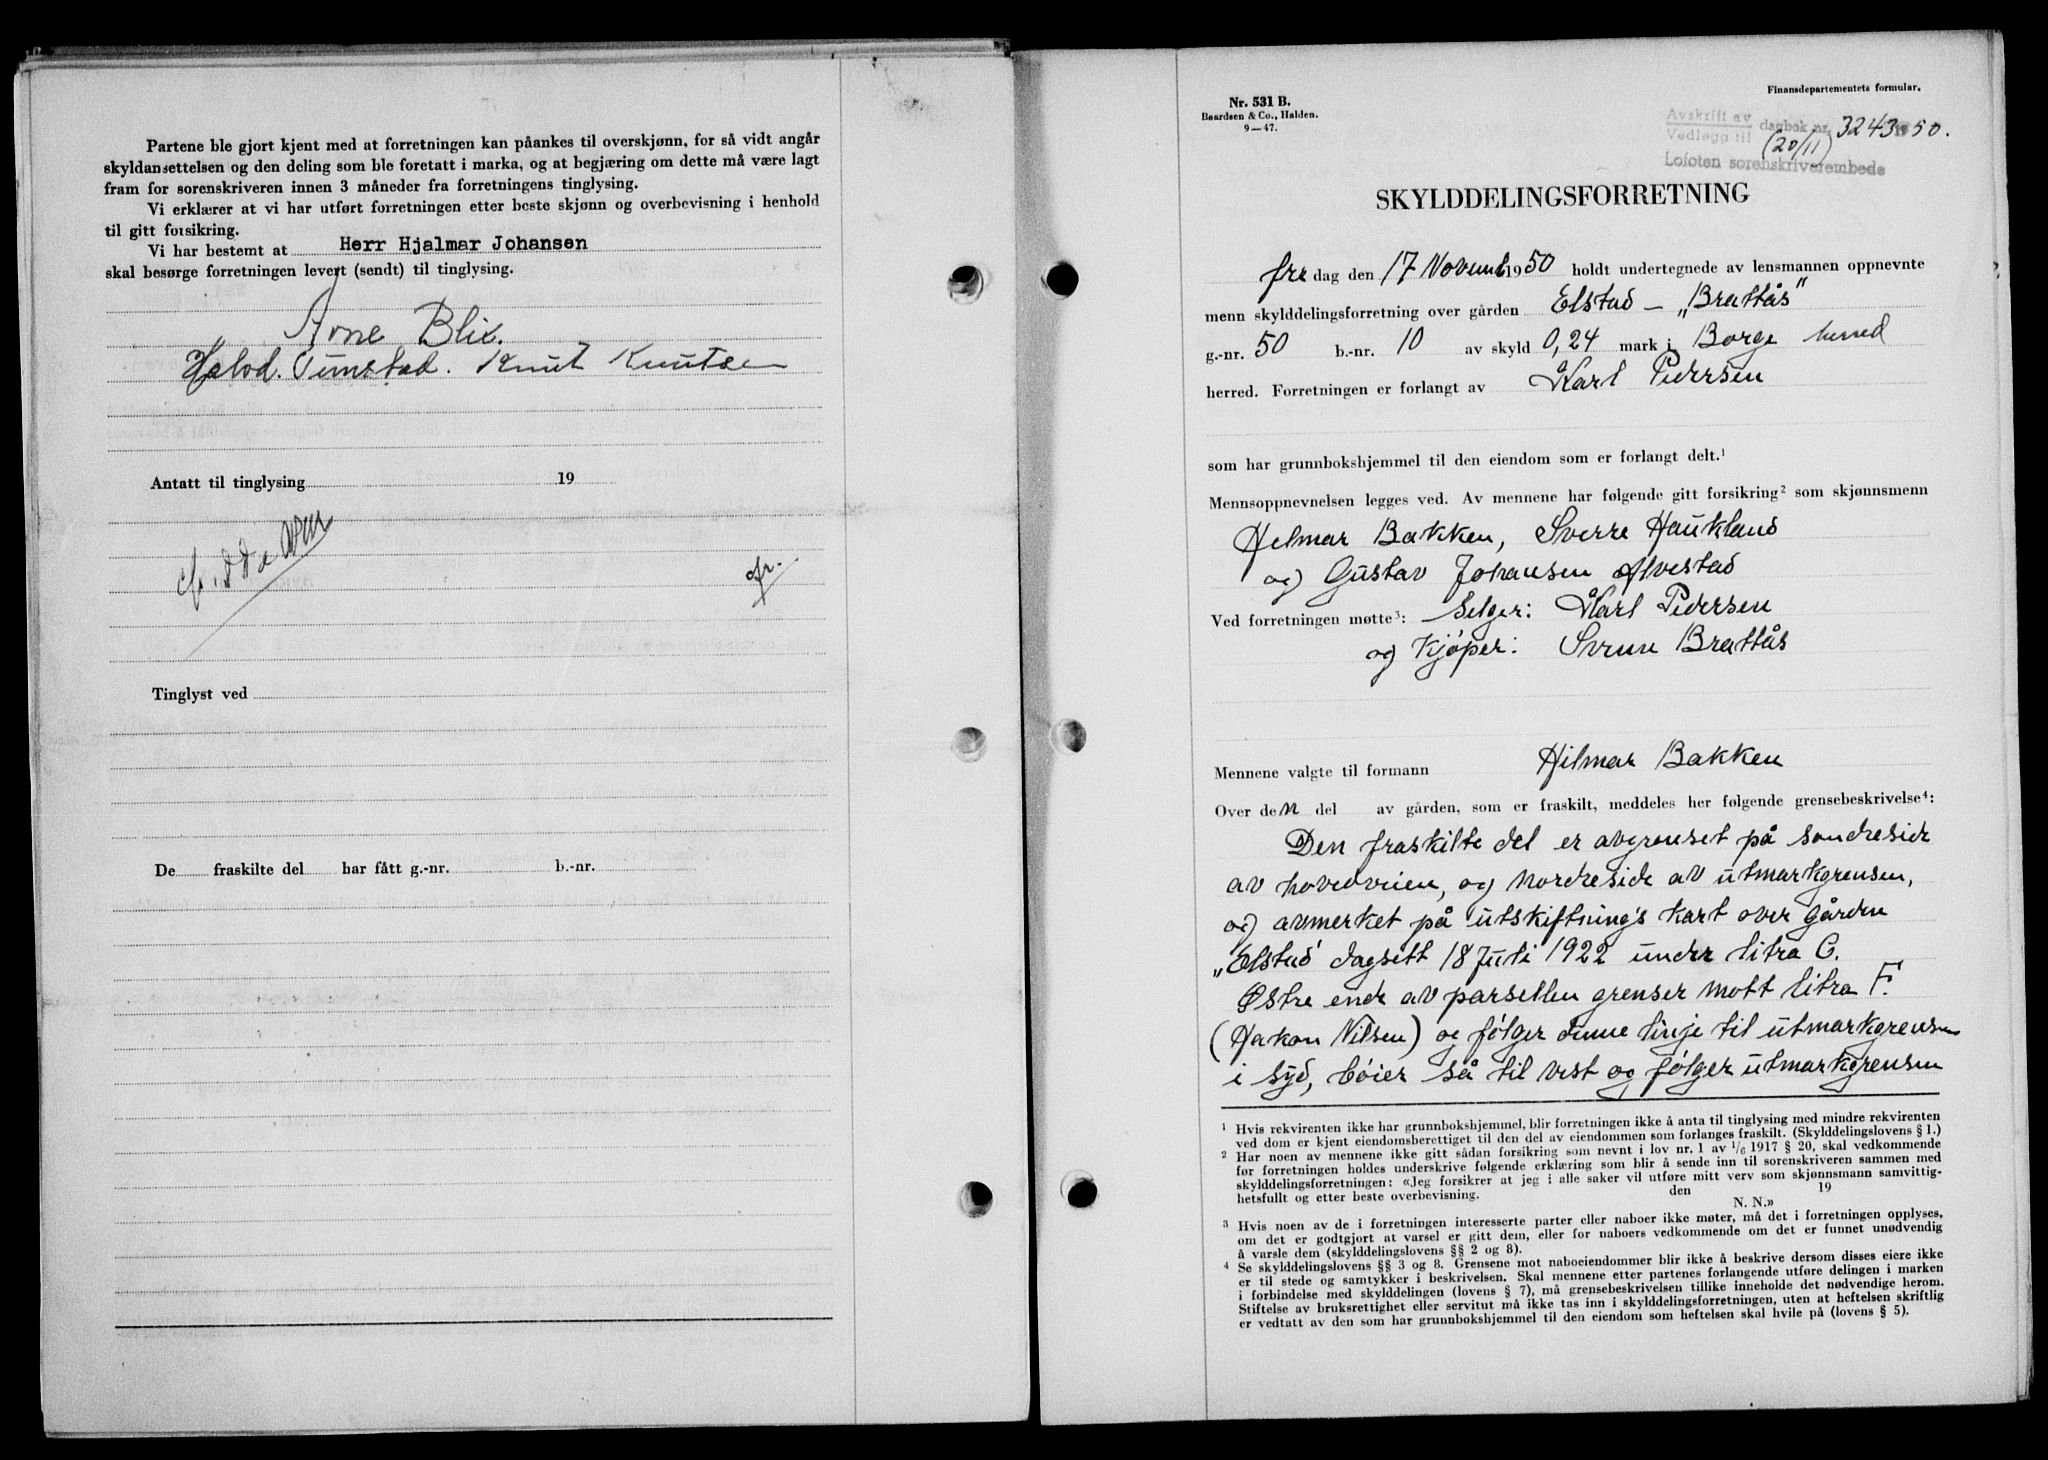 Partene ble gjort kjent med at forretningen kan påankes til overskjønn, for så vidt angår
skyldansettelsen og den deling som ble foretatt i marka, og at begjæring om dette må være lagt
fram for sorenskriveren innen 3 måneder fra forretningens tinglysing.
Vi erklærer at vi har utført forretningen etter beste skjønn og overbevisning i henhold
til gitt forsikring.
Vi har bestemt at Herr Hjalmar Johansen
skal besørge forretningen levert (sendt) til tinglysing.
Arne Blix.
Halvd. Tunstad. Knut Knutsen
Antatt til tinglysing 19
Tinglyst ved
De fraskilte del har fått g.-nr. b.-nr.
Nr. 531 B.
Baardsen & Co., Halden.
9—47.
Finansdepartementets formular.
Avskrift av
Vedlegg til dagbok nr. 3243 1950.
(20/11)
Lofoten sorenskriverembede
SKYLDDELINGSFORRETNING
fre dag den 17 Novemb 1950 holdt undertegnede av lensmannen oppnevnte
menn skylddelingsforretning over gården Elstad – „Brattås"
g.-nr. 50 b.-nr. 10 av skyld 0,24 mark i Borge herred
herred. Forretningen er forlangt av Kårl Pedersen
som har grunnbokshjemmel til den eiendom som er forlangt delt.¹
Mennsoppnevnelsen legges ved. Av mennene har følgende gitt forsikring² som skjønnsmenn
Helmar Bakken, Sverre Haukland
og Gustav Johansen Alvestad
Ved forretningen møtte³: Selger: Kårl Pedersen
og Kjøper: Svenn Brattås
Mennene valgte til formann Hilmar Bakken
Over den del av gården, som er fraskilt, meddeles her følgende grensebeskrivelse⁴:
Den fraskilte del er avgrenset på søndreside
av hovedveien, og nordreside av utmarkgrensen,
og avmerket på utskiftning's kart over gården
„Elstad" dagsett 18 Juli 1922 under litra C.
Østre ende av parsellen grenser mott litra F.
(Håkon Nilsen) og følger denne linje til utmarkgrensen
i syd, bøier så til vest og følger utmarkgrensen
¹ Hvis rekvirenten ikke har grunnbokshjemmel, blir forretningen ikke å anta til tinglysing med mindre rekvirenten
ved dom er kjent eiendomsberettiget til den del av eiendommen som forlanges fraskilt. (Skylddelingslovens § 1.)
² Har noen av mennene ikke gitt sådan forsikring som nevnt i lov nr. 1 av 1/6 1917 § 20, skal vedkommende
før forretningen holdes underskrive følgende erklæring som blir å sende inn til sorenskriveren sammen med
skylddelingsforretningen: «Jeg forsikrer at jeg i alle saker vil utføre mitt verv som skjønnsmann samvittig-
hetsfullt og etter beste overbevisning. den 19
N. N.»
³ Hvis noen av de i forretningen interesserte parter eller naboer ikke møter, må det i forretningen opplyses,
om det er godtgjort at varsel er gitt dem, eller for naboers vedkommende om det er funnet unødvendig
å varsle dem (skylddelingslovens §§ 2 og 8).
⁴ Se skylddelingslovens §§ 3 og 8. Grensene mot naboeiendommer blir ikke å beskrive dersom disses eiere ikke
er til stede og samtykker i beskrivelsen. Skal mennene etter partenes forlangende utføre delingen i marken
i forbindelse med skylddelingen (lovens § 7), må grensebeskrivelsen tillike inneholde det nødvendige herom.
Stiftelse av bruksrettighet eller servitut må ikke tas inn i skylddelingsforretningen, uten at heftelsen skriftlig
er vedtatt av den som har grunnbokshjemmel til den eiendom som heftelsen skal hvile på (lovens § 5).